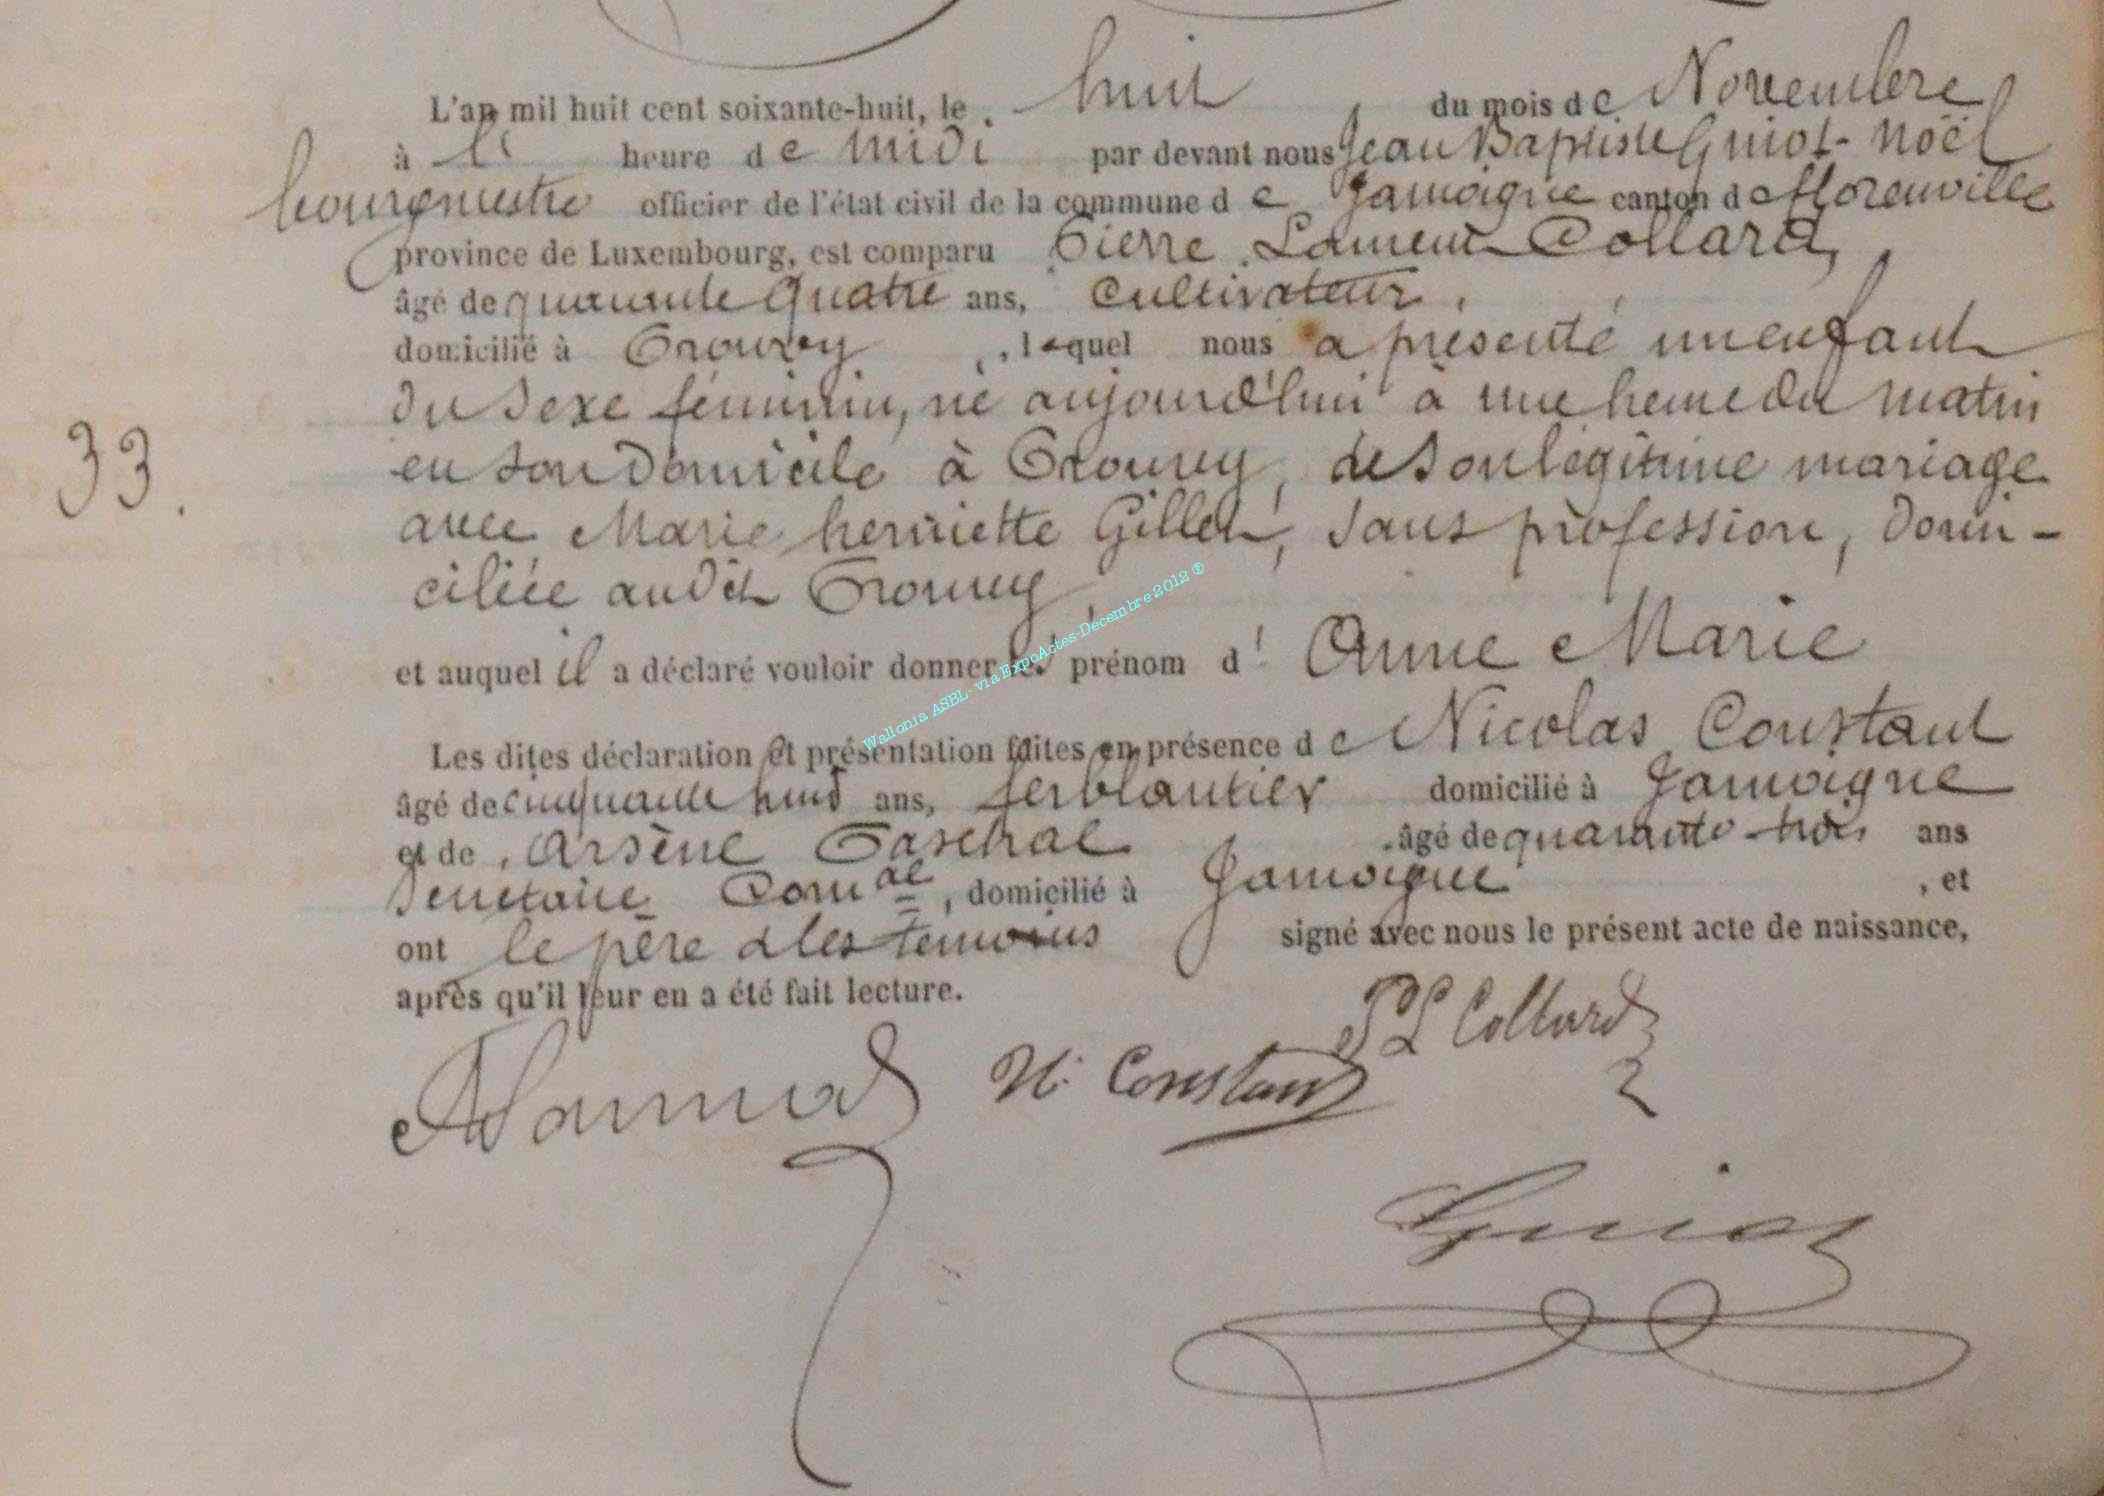 L'an mil huit cent soixante-huit, le huit du mois de Novembre
à l' heure de midi par devant nous Jean Baptiste Guiot-Noël
bourgmestre officier de l'état civil de la commune de Jamoigne canton de florenville
province de Luxembourg, est comparu Pierre Laurent Collard,
âgé de quarante quatre ans, Cultivateur,
domicilié à Prouvy, lequel nous a présenté un enfant
du sexe féminin, né aujourd'hui à une heure du matin
en son domicile à Prouvy, de son légitime mariage
33.
avec Marie henriette Gillet, sans profession, domi-
ciliée audit Prouvy
et auquel il a déclaré vouloir donner les prénom d' Anne Marie
Wallonia ASBL - via ExpoActes-Décembre 2012 ®
Les dites déclaration et présentation faites en présence de Nicolas Constant
âgé de cinquante huit ans, ferblantier domicilié à Jamoigne
et de Arsène Paschal âgé de quarante trois ans
Secrétaire Com al, domicilié à Jamoigne, et
ont le père & les temoins signé avec nous le présent acte de naissance,
après qu'il leur en a été fait lecture.
P L Collard
N. Constant
Guiot